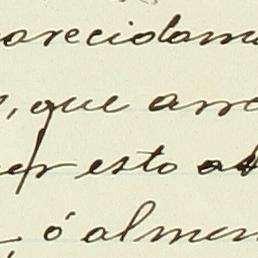 arecidam
, que arre
er esto
, ó almen